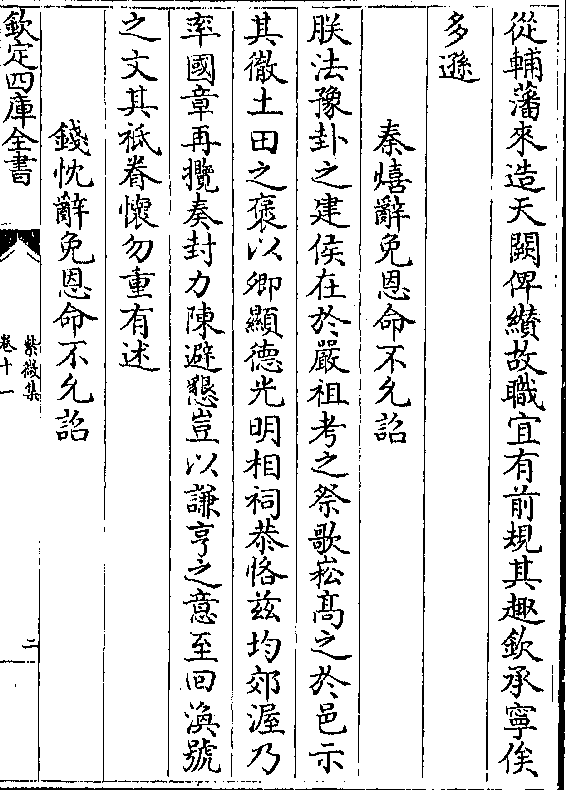 從輔藩來造天闕俾纉故職宜有前規其趣欽承寧俟
多遜
秦熺辭免恩命不允詔
朕法豫卦之建侯在於嚴祖考之祭歌崧髙之於邑示
其徹土田之褒以卿顯德光明相祠恭恪兹均郊渥乃
率國章再攬奏封力陳避懇豈以謙亨之意至回渙號
之文其祇眷懷勿重有述
錢忱辭免恩命不允詔
欽定四庫全書
紫微集
卷十一
二